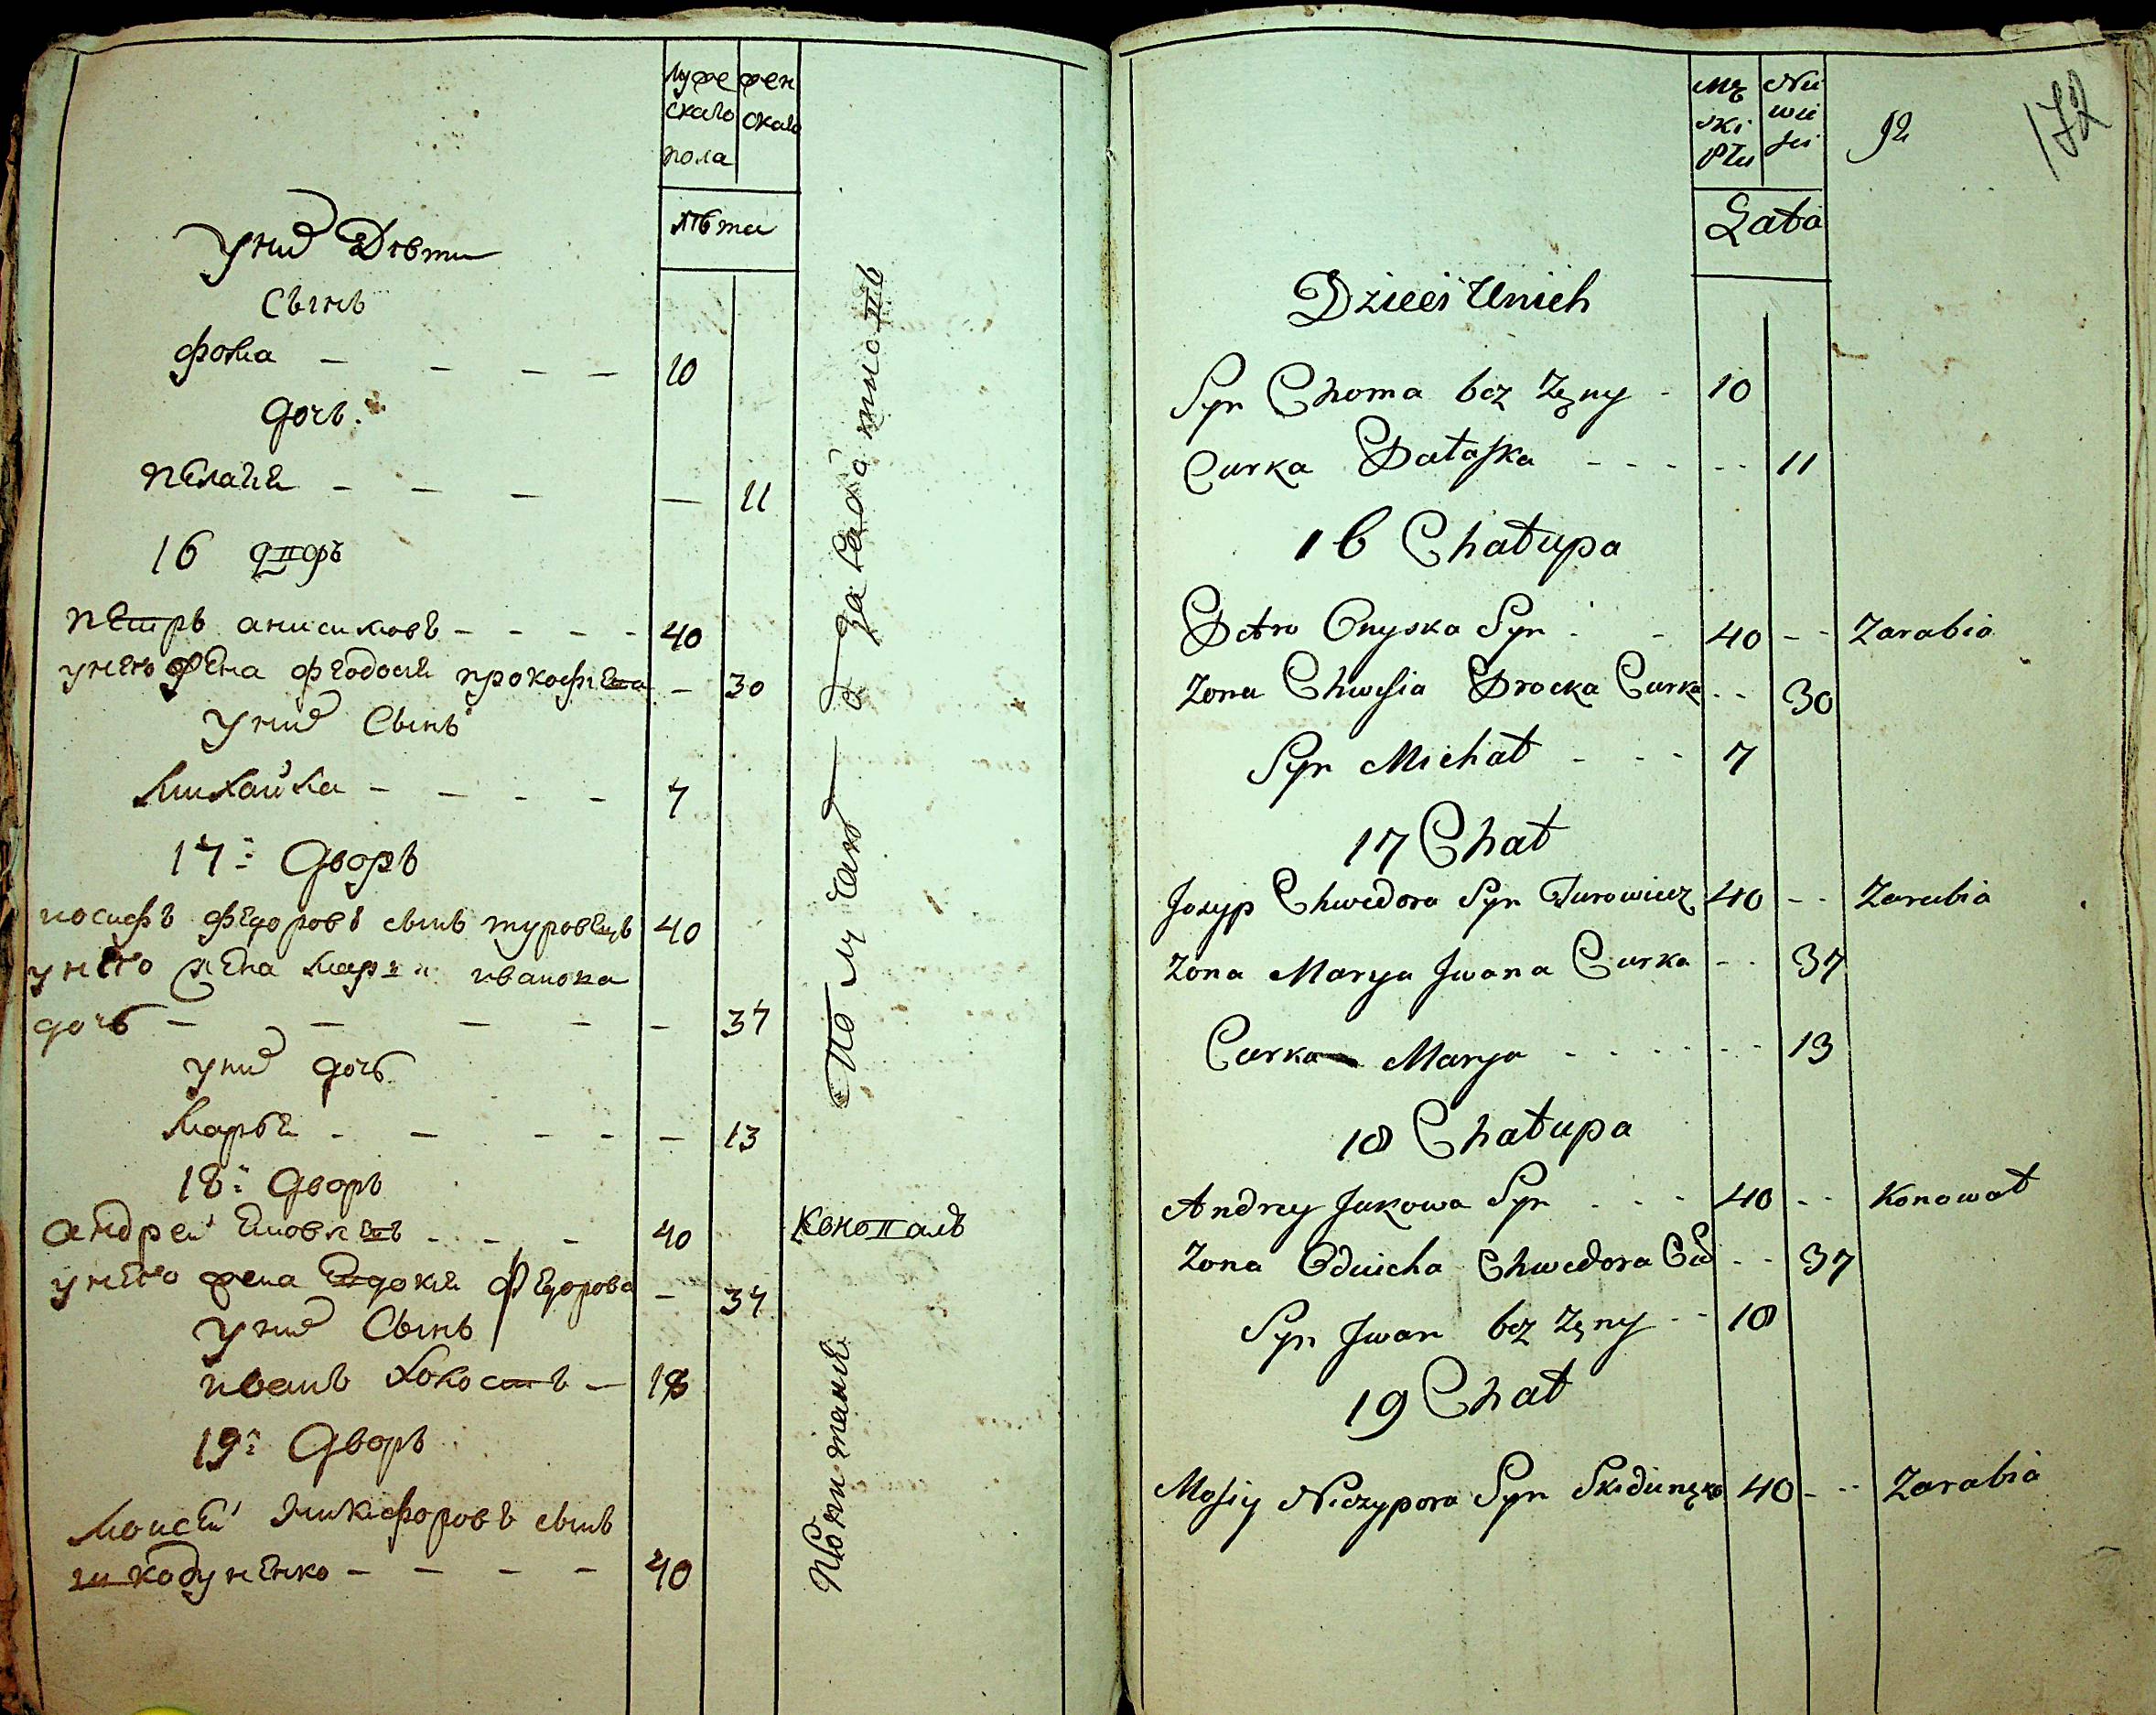 муже
скаго
пола
жен
скаго
лѣта
у них Дѣти
Сынъ
Фома - - - - 10
дочь
Пелагея - - - - 11
16 дворъ
Петръ Анисимовъ - - - - 40
у него жена Феодосия Прокофиева - 30
у них Сынъ
Михайла - - - - 7
17: дворъ
Иосифъ Федоровъ сынъ Туровецъ 40
у него жена Марья Иванова
дочь - - - - - 37
у них дочь
Марья - - - - - 13
18: дворъ
Андрей Яковлевъ - - - 40
у него жена Евдокия Федорова - 37
у них Сынъ
Иванъ Холостъ - 18
19: дворъ
Моисей Никифоровъ сынъ
шкодуненко - - - - 40
зарабатываютъ
Коновалъ
Пропитания
Mę
ski
Płci
Nie
wie
ści
92
172
Lata
Dzieci U nich
Syn Choma bez Żęny - 10
Curka Pałaska - - - - - 11
16 Chałupa
Petro Onyska Syn - - 40 - - Zarabia
Zona Chwesia Procka Curka - - 30
Syn Michał - - - 7
17 Chał
Jozyp Chwedora Syn Turowiec 40 - - Zarabia
Zona Marya Jwana Curka - - 37
Curka Marya - - - - - - 13
18 Chałupa
Andrey Jakowa Syn - - - 40 - - Konował
Zona Oduicha Chwedora Cór - - 37
Syn Jwan bez Żęny - - 18
19 Chał
Mosiy Niczypora Syn Skidunęko 40 - - - Zarabia